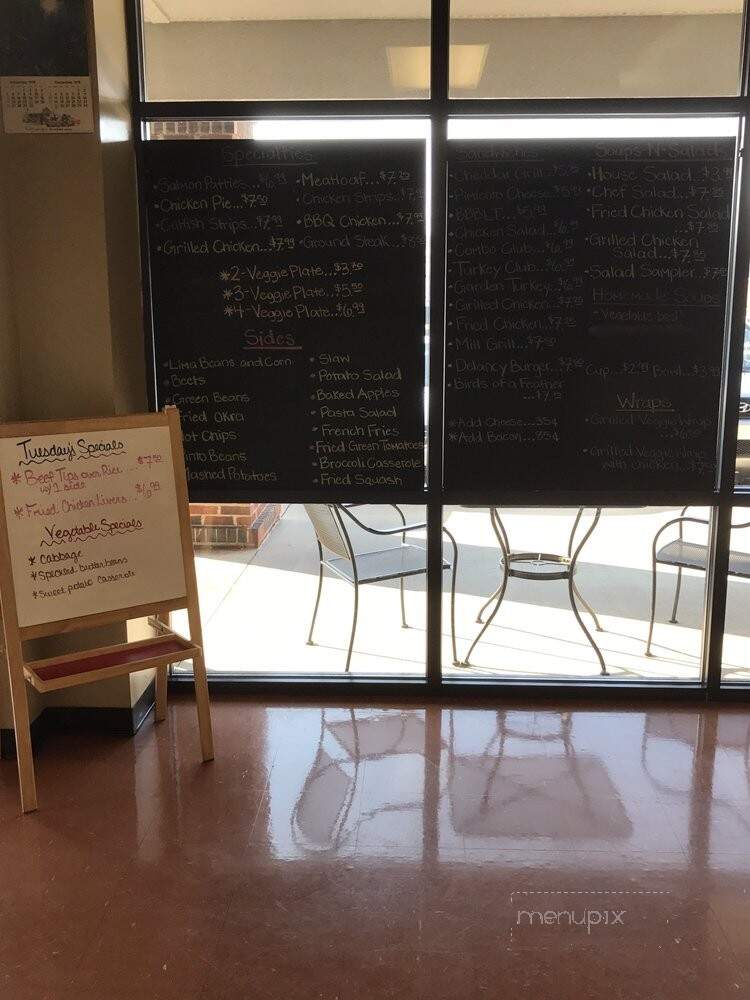 Specialties
•Salmon Patties...$6.99 •Meatloaf...$7.
•Chicken Pie...$7.50 •Chicken Strips...$7
•Catfish Strips...$7.99 •BBQ Chicken...$7.99
•Grilled Chicken...$7.99 •Ground Steak...$
*2-Veggie Plate...$3.
*3-Veggie Plate...$5.50
*4-Veggie Plate...$6.99
Sides
•Lima Beans and Corn
•Beets
•Green Beans
Fried Okra
Hot Chips
Pinto Beans
Mashed Potatoes
•Slaw
•Potato Salad
•Baked Apples
•Pasta Salad
•French Fries
•Fried Green Tomatoes
•Brocoli Casserole
•Fried Squash
Sandwiches
•Cheddar Grill...
•Pimiento Cheese...
•BBBLT...
•Chicken Salad...
•Combo Club...
•Turkey Club...
•Garden Turkey...
•Grilled Chicken...
•Fried Chicken...
•Mill Grill...
•Delancy Burger...
•Birds of a Feather
*Add Cheese...35¢
*Add Bacon...85¢
Soups-N-Salads
•House Salad...$3.
•Chef Salad...$7.
•Fried Chicken Salad
...$7.
•Grilled Chicken
Salad...$7.
•Salad Sampler...$7.
Homemade Soups
•Vegetable Beef
Cup...$2.99 Bowl...$3.
Wraps
•Grilled Veggie Wrap
•Grilled Veggie Wrap
with chicken...$7.
Tuesday's Specials
* Beef Tips over Rice....$7.50
w/1 side
* Fried Chicken Livers...$6.99
Vegetable Specials
* Cabbage
* Speckled butterbeans
* Sweet potato casserole
menupix